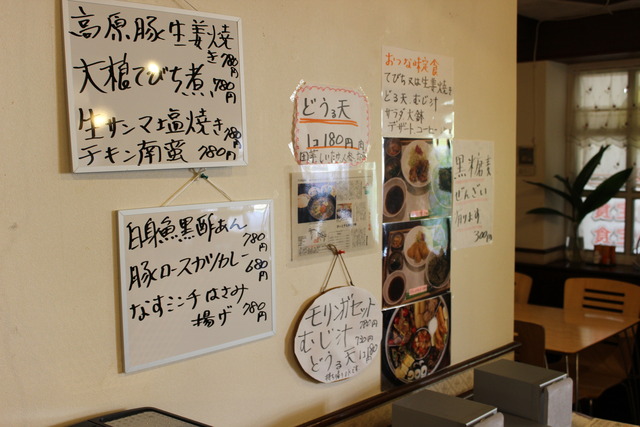 高原豚生姜焼き780円
大根てびち煮780円
生サンマ塩焼き780円
チキン南蛮780円
白身魚黒酢あん
780円
豚ロースカツカレー680円
なすミンチはさみ
揚げ780円
どぅる天
1コ180円
モリンガセット
むじ汁
どぅる天1コ180円
おつな味定食
てびち又は生姜焼き
どる天、むじ汁
サラダ大鉢
デザートコーヒー
黒糖麦
ぜんざい
300円